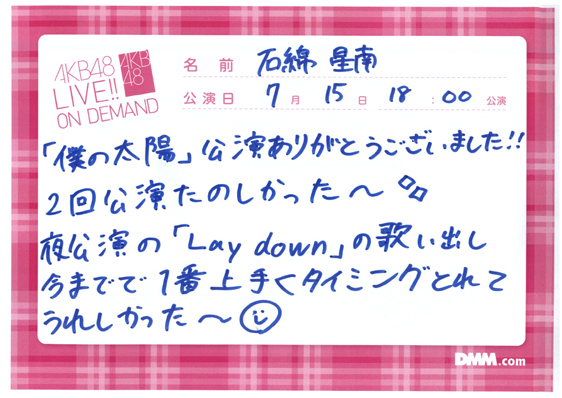 AKB48
LIVE!!
ON DEMAND
AKB
48
名前 石綿 星南
公演日 7月 15日 18:00 公演
「僕の太陽」公演ありがとうございました!!
2回公演たのしかった〜
夜公演の「Lay down」の歌い出し
今までで1番上手くタイミングとれて
うれしかった〜
DMM.com